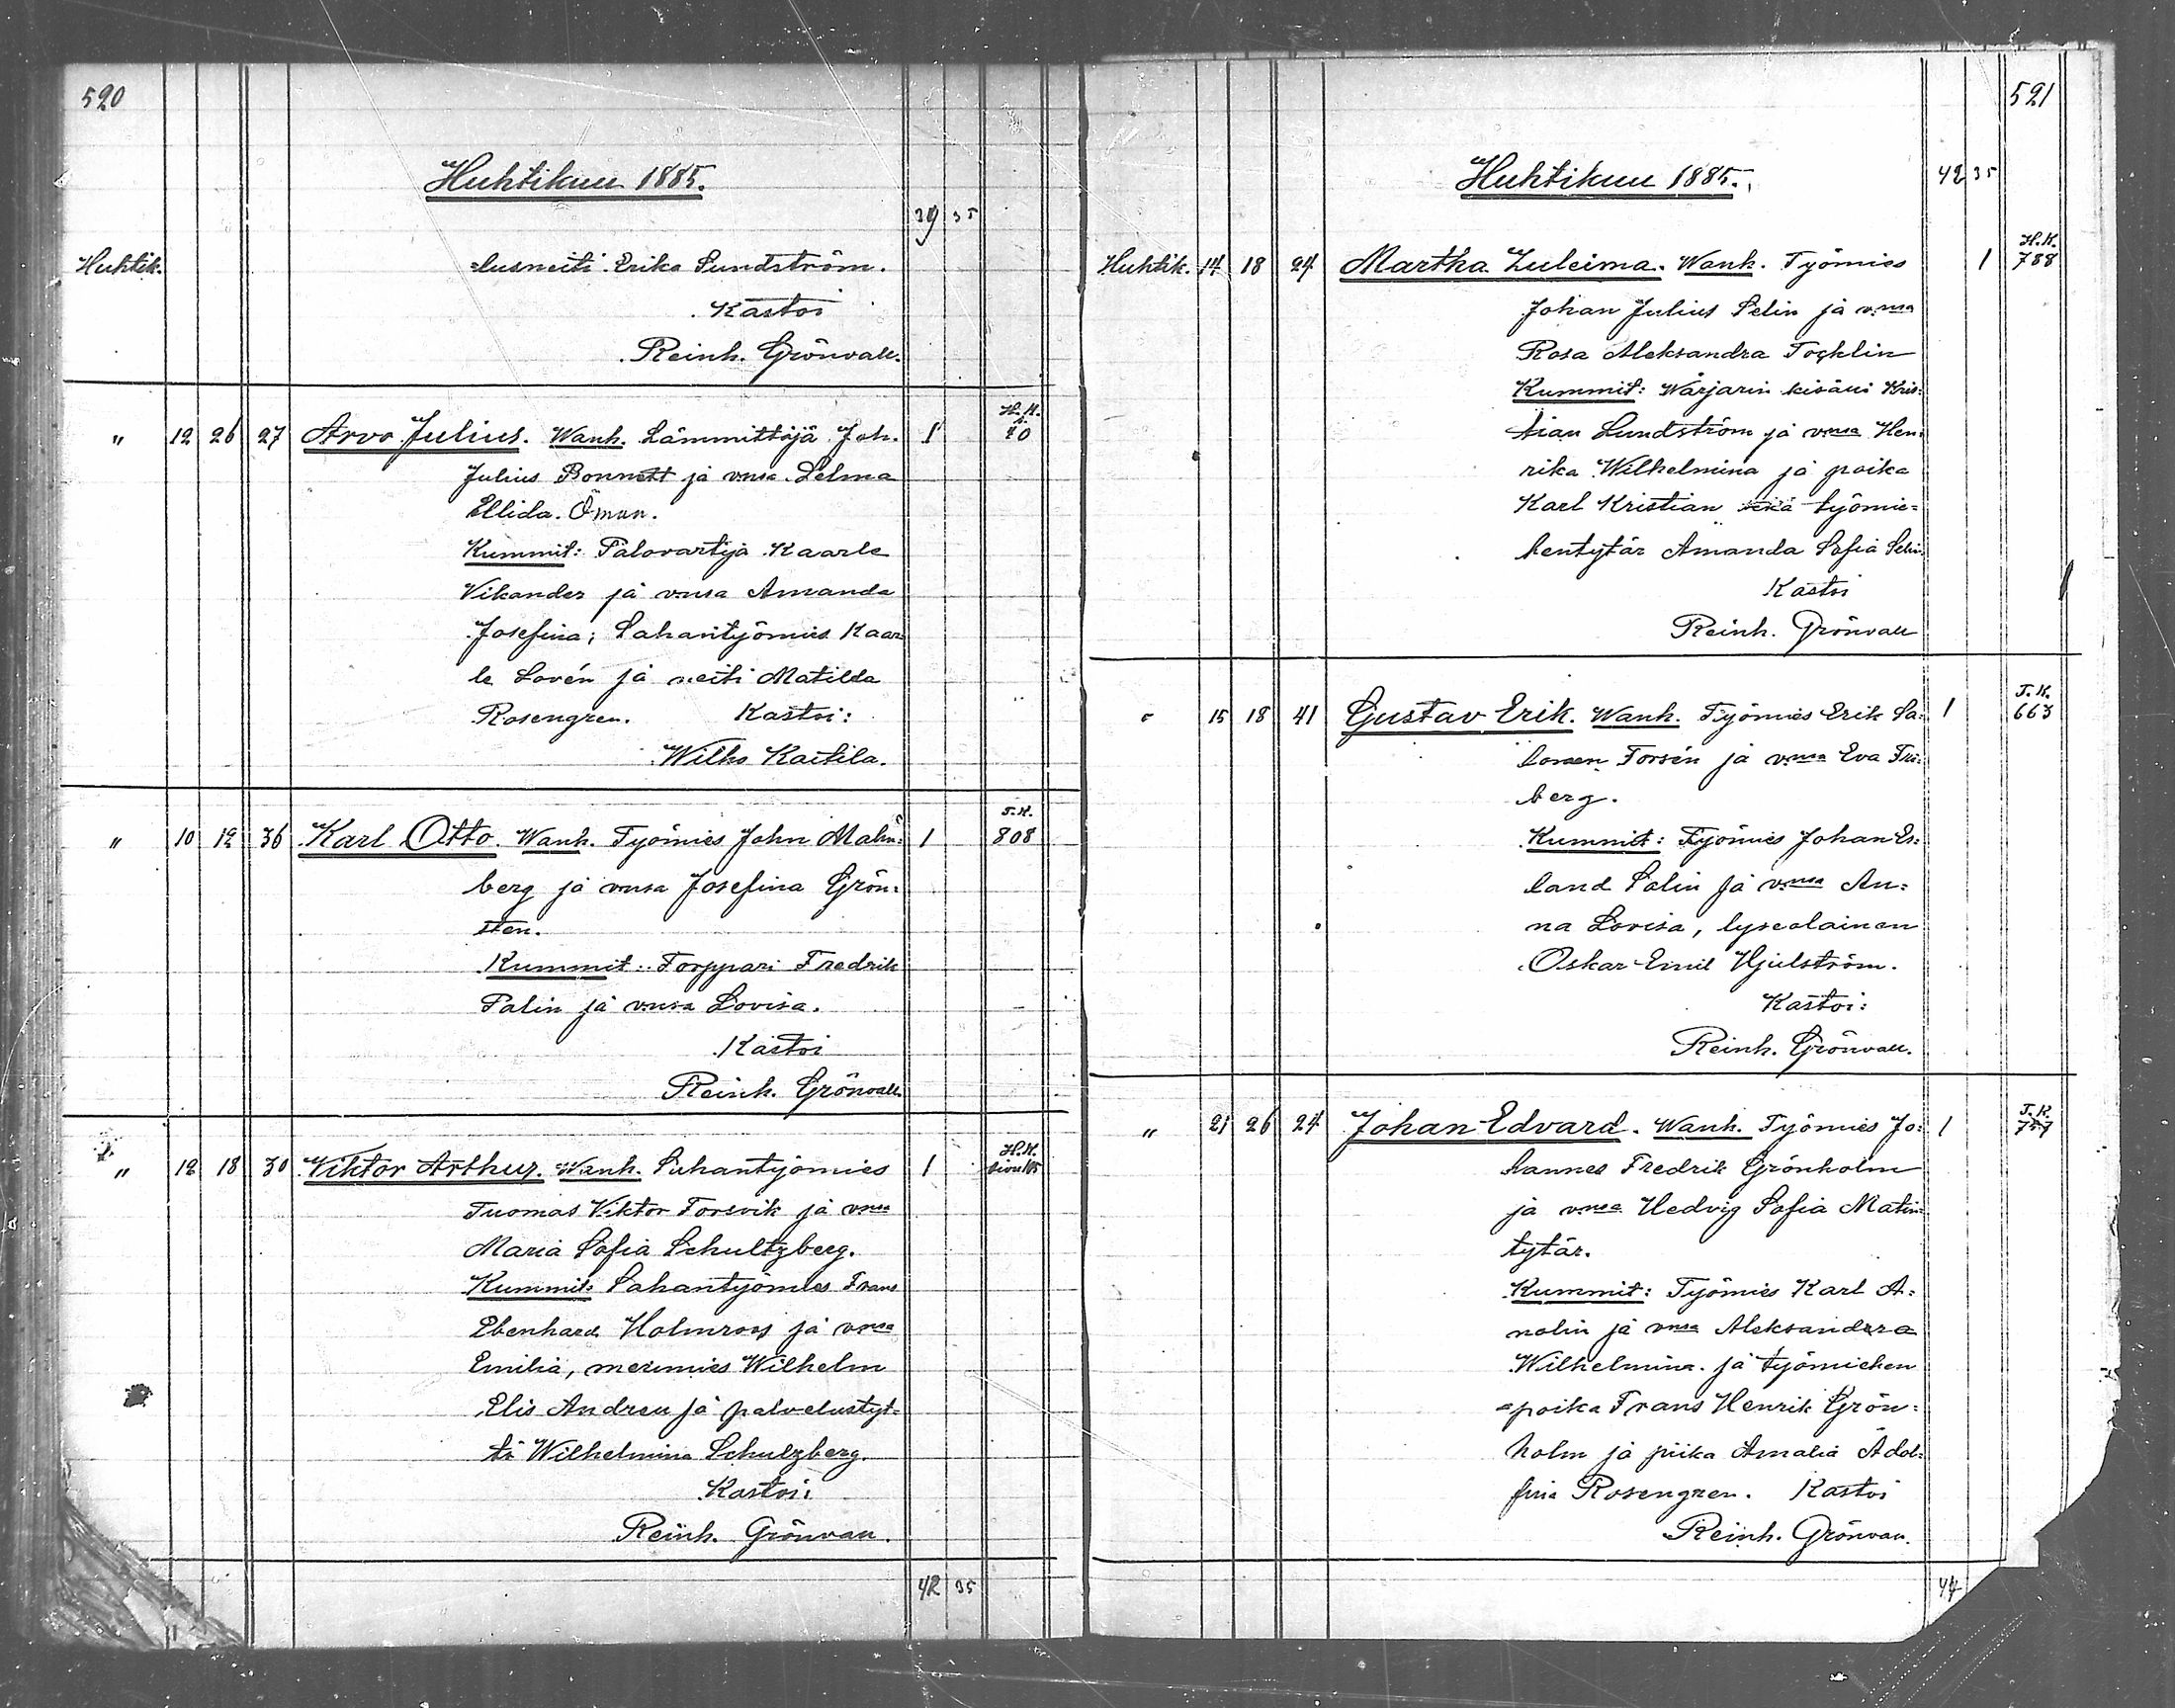 520
Huhtikuu 1885.
39 35
Huhtik. =lusneiti Erika Sundström.
Kastoi
Reinh. Grönvall.
" 12 26 27 Arvo Julius. Wanh. Lämmittäjä Joh. 1 H.K. 70
Julius Bonnett ja vmsa Selma
Ellida Öman.
Kummit: Palovartija Kaarle
Vikander ja vmsa Amanda
Josefina; Sahantyömies Kaar
le Lovén ja neiti Matilda
Rosengren. Kastoi:
Wilho Kaitila.
" 10 12 36 Karl Otto. Wanh. Työmies John Malm= 1 T.K. 808
berg ja vmsa Josefina Grön=
sten.
Kummit: Torppari Fredrik
Palin ja vmsa Lovisa.
Kastoi
Reinh. Grönvall.
" 12 18 30 Viktor Arthur. Wanh. Sahantyömies 1 H.K.
Tuomas Viktor Forsvik ja vmsa
Maria Sofia Schultzberg.
Kummit: Sahantyömies Frans
Ebenhard Holmroos ja vmsa
Emilia, merimies Wilhelm
Elis Andreu ja palvelustyt=
tö Wilhelmina Schulzberg.
Kastoi
Reinh. Grönvall.
42 35
521
Huhtikuu 1885. 42 35
Huhtik. 14 18 24 Martha Zuleima. Wanh. Työmies 1 H.K. 788
Johan Julius Selin ja vmsa
Rosa Aleksandra Tocklin
Kummit: Wärjärin kisälli Kris=
tian Lundström ja vmsa Hen=
rika Wilhelmina ja poika
Karl Kristian sekä työmie=
hentytär Amanda Sofia Selin
Kastoi
Reinh. Grönvall
" 15 18 41 Gustav Erik. Wanh. Työmies Erik Sa= 1 T.K. 663
lomon Forsén ja vmsa Eva Fri=
berg.
Kummit: Työmies Johan Er=
land Salin ja vmsa An=
na Lovisa, lyseolainen
Oskar Emil Hjulström.
Kastoi:
Reinh. Grönvall.
" 21 26 24 Johan Edvard. Wanh. Työmies Jo= 1 T.K. 757
hannes Fredrik Grönholm
ja vmsa Hedvig Sofia Matin=
tytär.
Kummit: Työmies Karl A=
nolin ja vmsa Aleksandra
Wilhelmina ja työmiehen
=poika Frans Henrik Grön=
holm ja piika Amalia Adol=
fina Rosengren. Kastoi
Reinh. Grönvall.
44